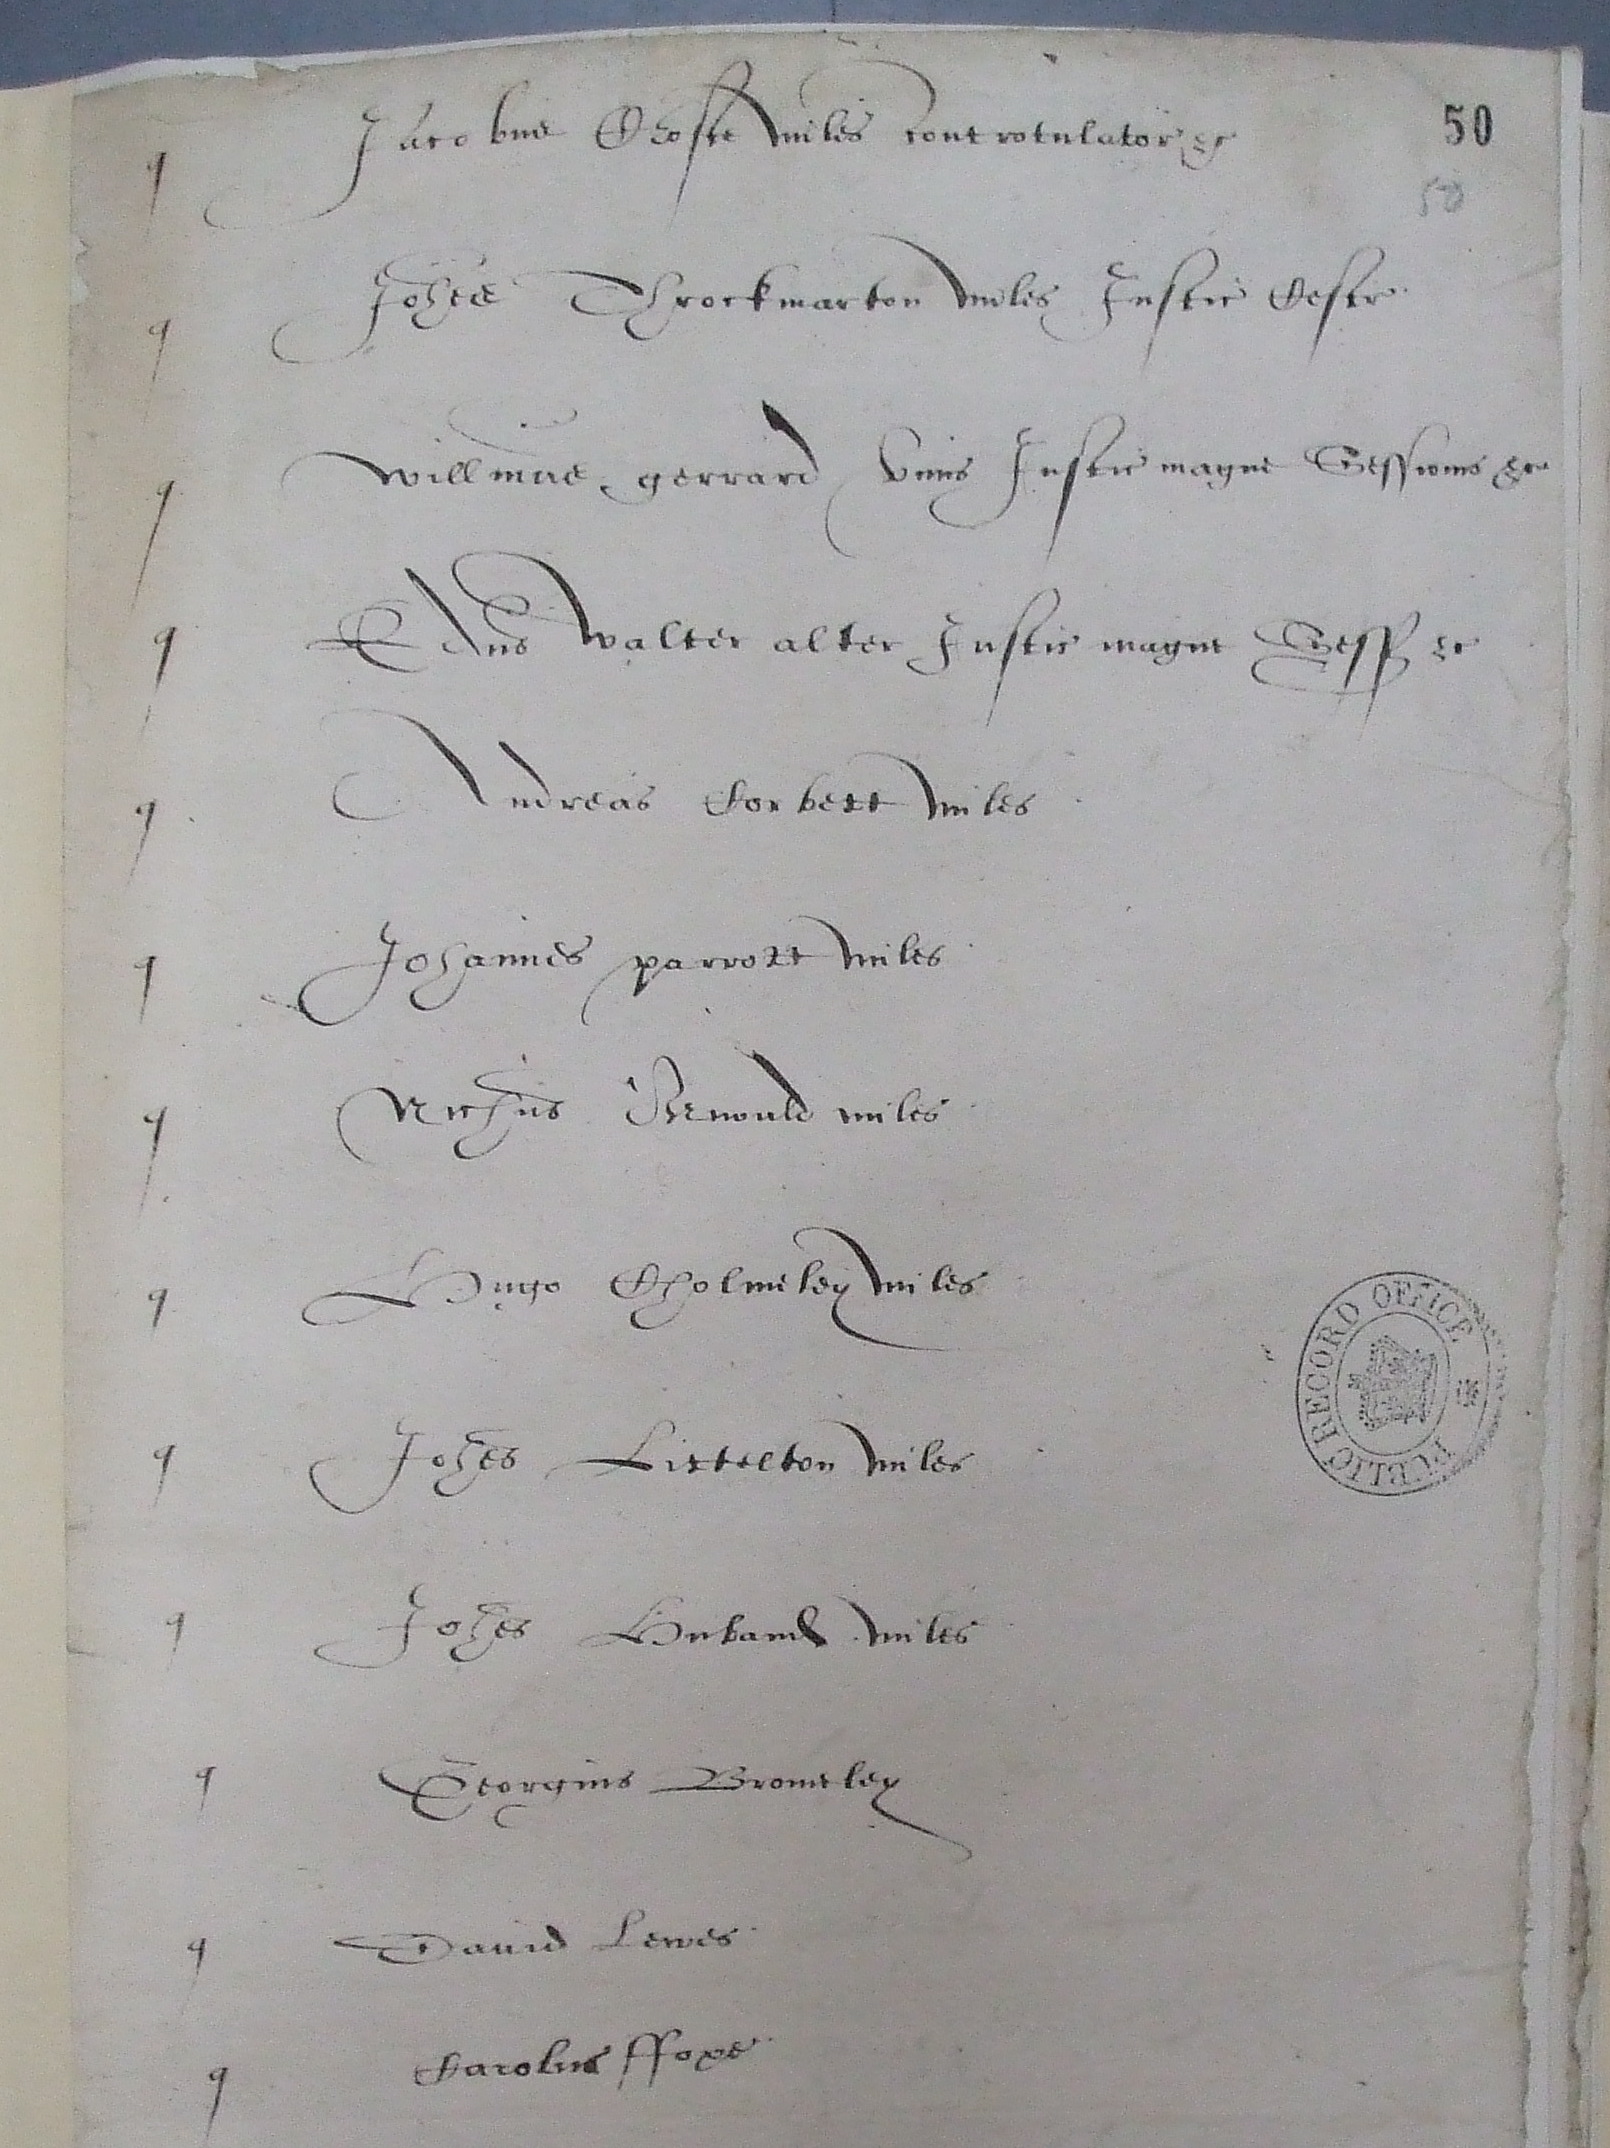 50
q Jacobus Crofte miles controtulator &c
50
q Johes Throckmarton miles Justic Cestr
q Willmus gerrard vnus Justic magne Sessionis &c
q Edus Walter alter Justic magne Sess &c
q Andreas Corbett miles
q Johannes parrott miles
q Nichus Arnould miles
q Hugo Cholmeley miles
q Johes Littelton miles
q Johes Huband miles
PUBLIC RECORD OFFICE
q Georgius Bromeley
q Dauid Lewes
q Carolus ffoxe